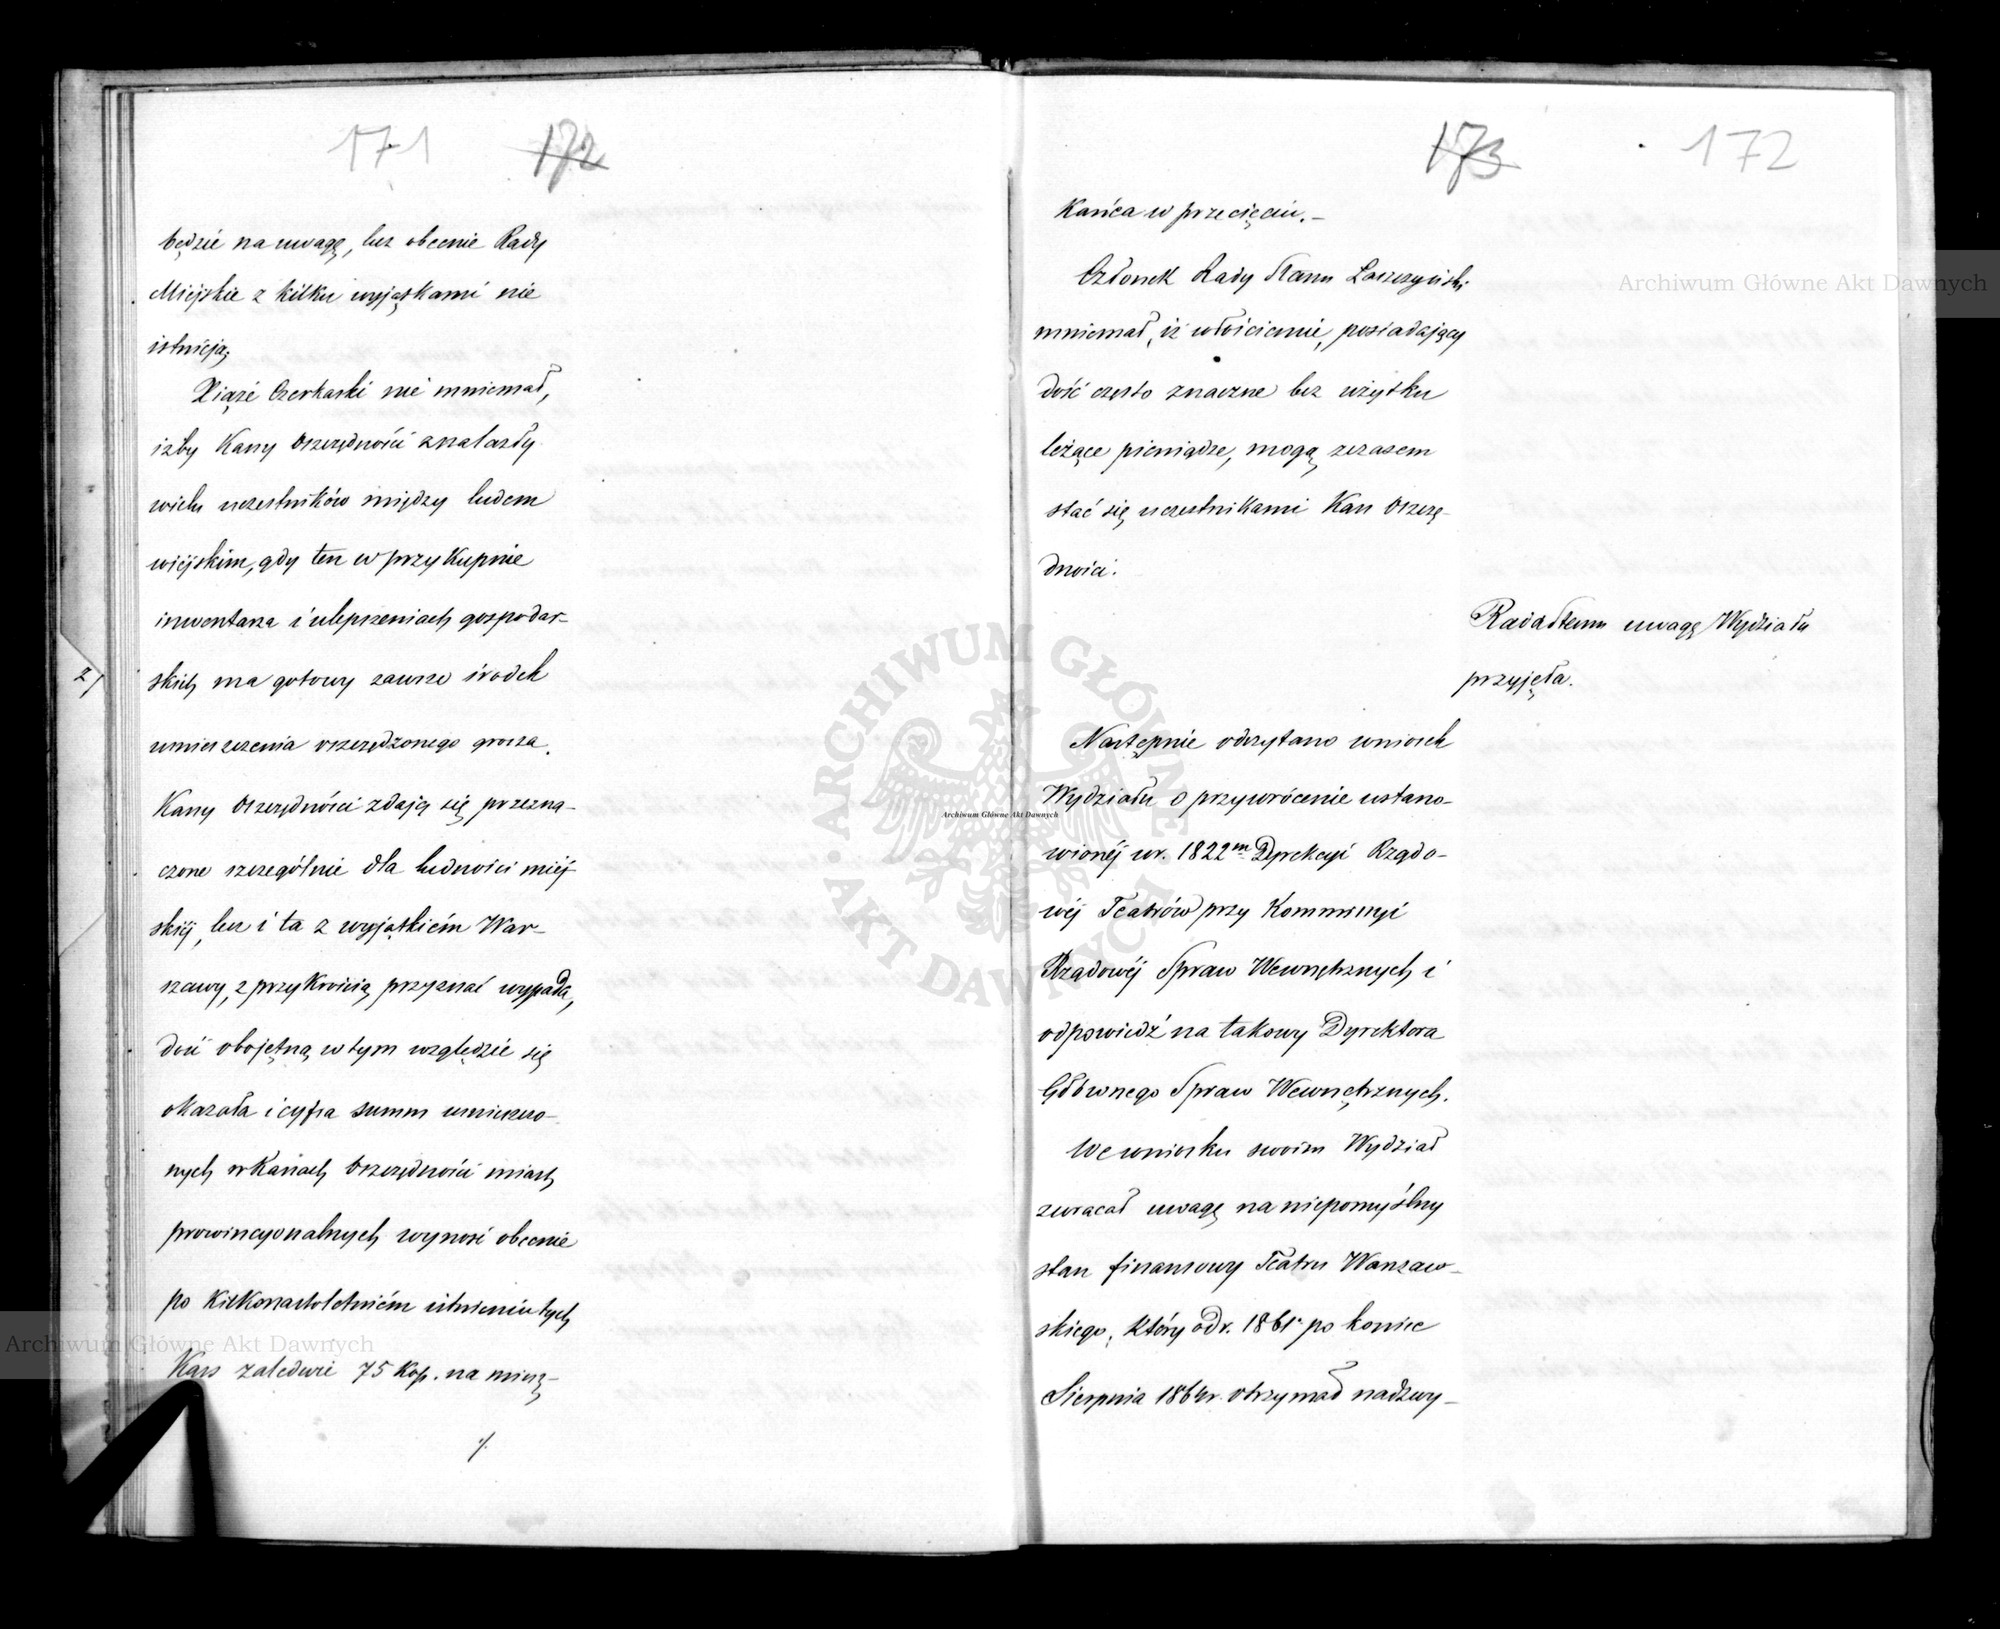 171 172
będzie na uwagę, lecz obecnie Rady
Miejskie z kilku wyjątkami nie
istnieją.
Xiąże Czerkaski nie mniemał,
iżby Kassy Oszczędności znalazły
wielu uczestników między ludem
wiejskim, gdy ten w przykupnie
inwentarza i ulepszeniach gospodar-
skich ma gotowy zawsze środek
umieszczenia oszczędzonego grosza.
Kassy Oszczędności zdają się przezna-
czone szczególnie dla ludności miej
skiéj, lecz i ta z wyjątkiém War-
szawy, z przykrością przyznać wypada,
dość obojętną w tym względzie się
okazała i cyfra summ umieszczo-
nych w Kassach Oszczędności miast
prowincyonalnych wynosi obecnie
po kilkonastoletniém istnieniu tych
Kass zaledwie 75 kop. na miesz-
./.
2/
173 172
kańca w przecięciu.-
Członek Rady Stanu Łaszczyński
mniemał, iż włościanie, posiadający
dość często znaczne bez użytku
leżące pieniądze, mogą z czasem
stać się uczestnikami Kass Oszczę-
dności.
Rada Stanu uwagę Wydziału
przyjęła.
Następnie odczytano wniosek
Wydziału o przywrócenie ustano-
wionéj w r. 1822m Dyrekcyi Rządo-
wéj Teatrów przy Kommissyi
Rządowéj Spraw Wewnętrznych i
odpowiedź na takowy Dyrektora
Głównego Spraw Wewnętrznych.
We wniosku swoim Wydział
zwracał uwagę na niepomyślny
stan finansowy Teatru Warszaw-
skiego, który od r. 1861o po koniec
Sierpnia 1864r. otrzymał nadzwy-
Archiwum Główne Akt Dawnych
Archiwum Główne Akt Dawnych
Archiwum Główne Akt Dawnych
ARCHIWUM GŁÓWNE AKT DAWNYCH